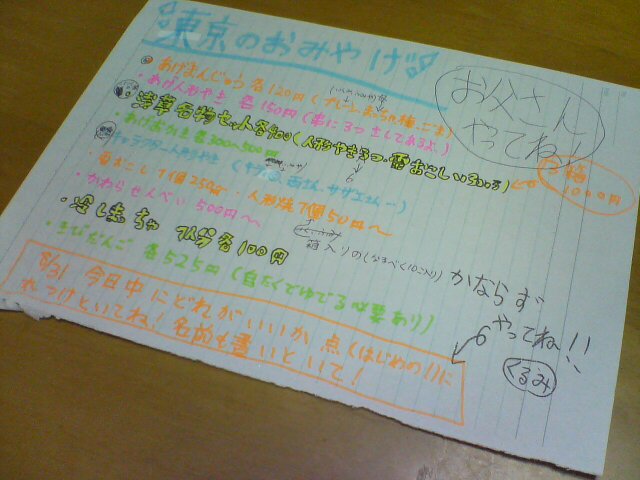 東京のおみやげ
お父さん
やってね!
・あげまんじゅう 各120円(プレーン、まっちゃ、種、ごま)
・あげ人形やき 各150円(串に3つさしてあるよ)
浅草名物セット各400(人形やき3つ・雷おこし
・あげおかき 各300〜500円
合格
1000円
キャラクター人形やき(
雷おこし1個250g・人形焼1個50円〜
・かわらせんべい 500円〜
箱入りの(なるべく10こ入り)
・冷し抹ちゃ 1人分各100円
・きびだんご 各525円(自たくでゆでる必要あり)
かならず
やってね!!
くるみ
8/31 今日中にどれがいいか 点(はじめの!)に
れつけといてね!名前も書いといて!